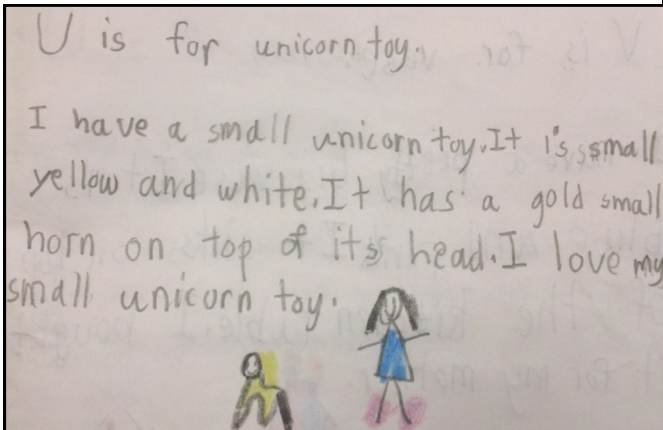 U is for unicorn toy.
I have a small unicorn toy. It is small
yellow and white. It has a gold small
horn on top of its head. I love my
small unicorn toy.